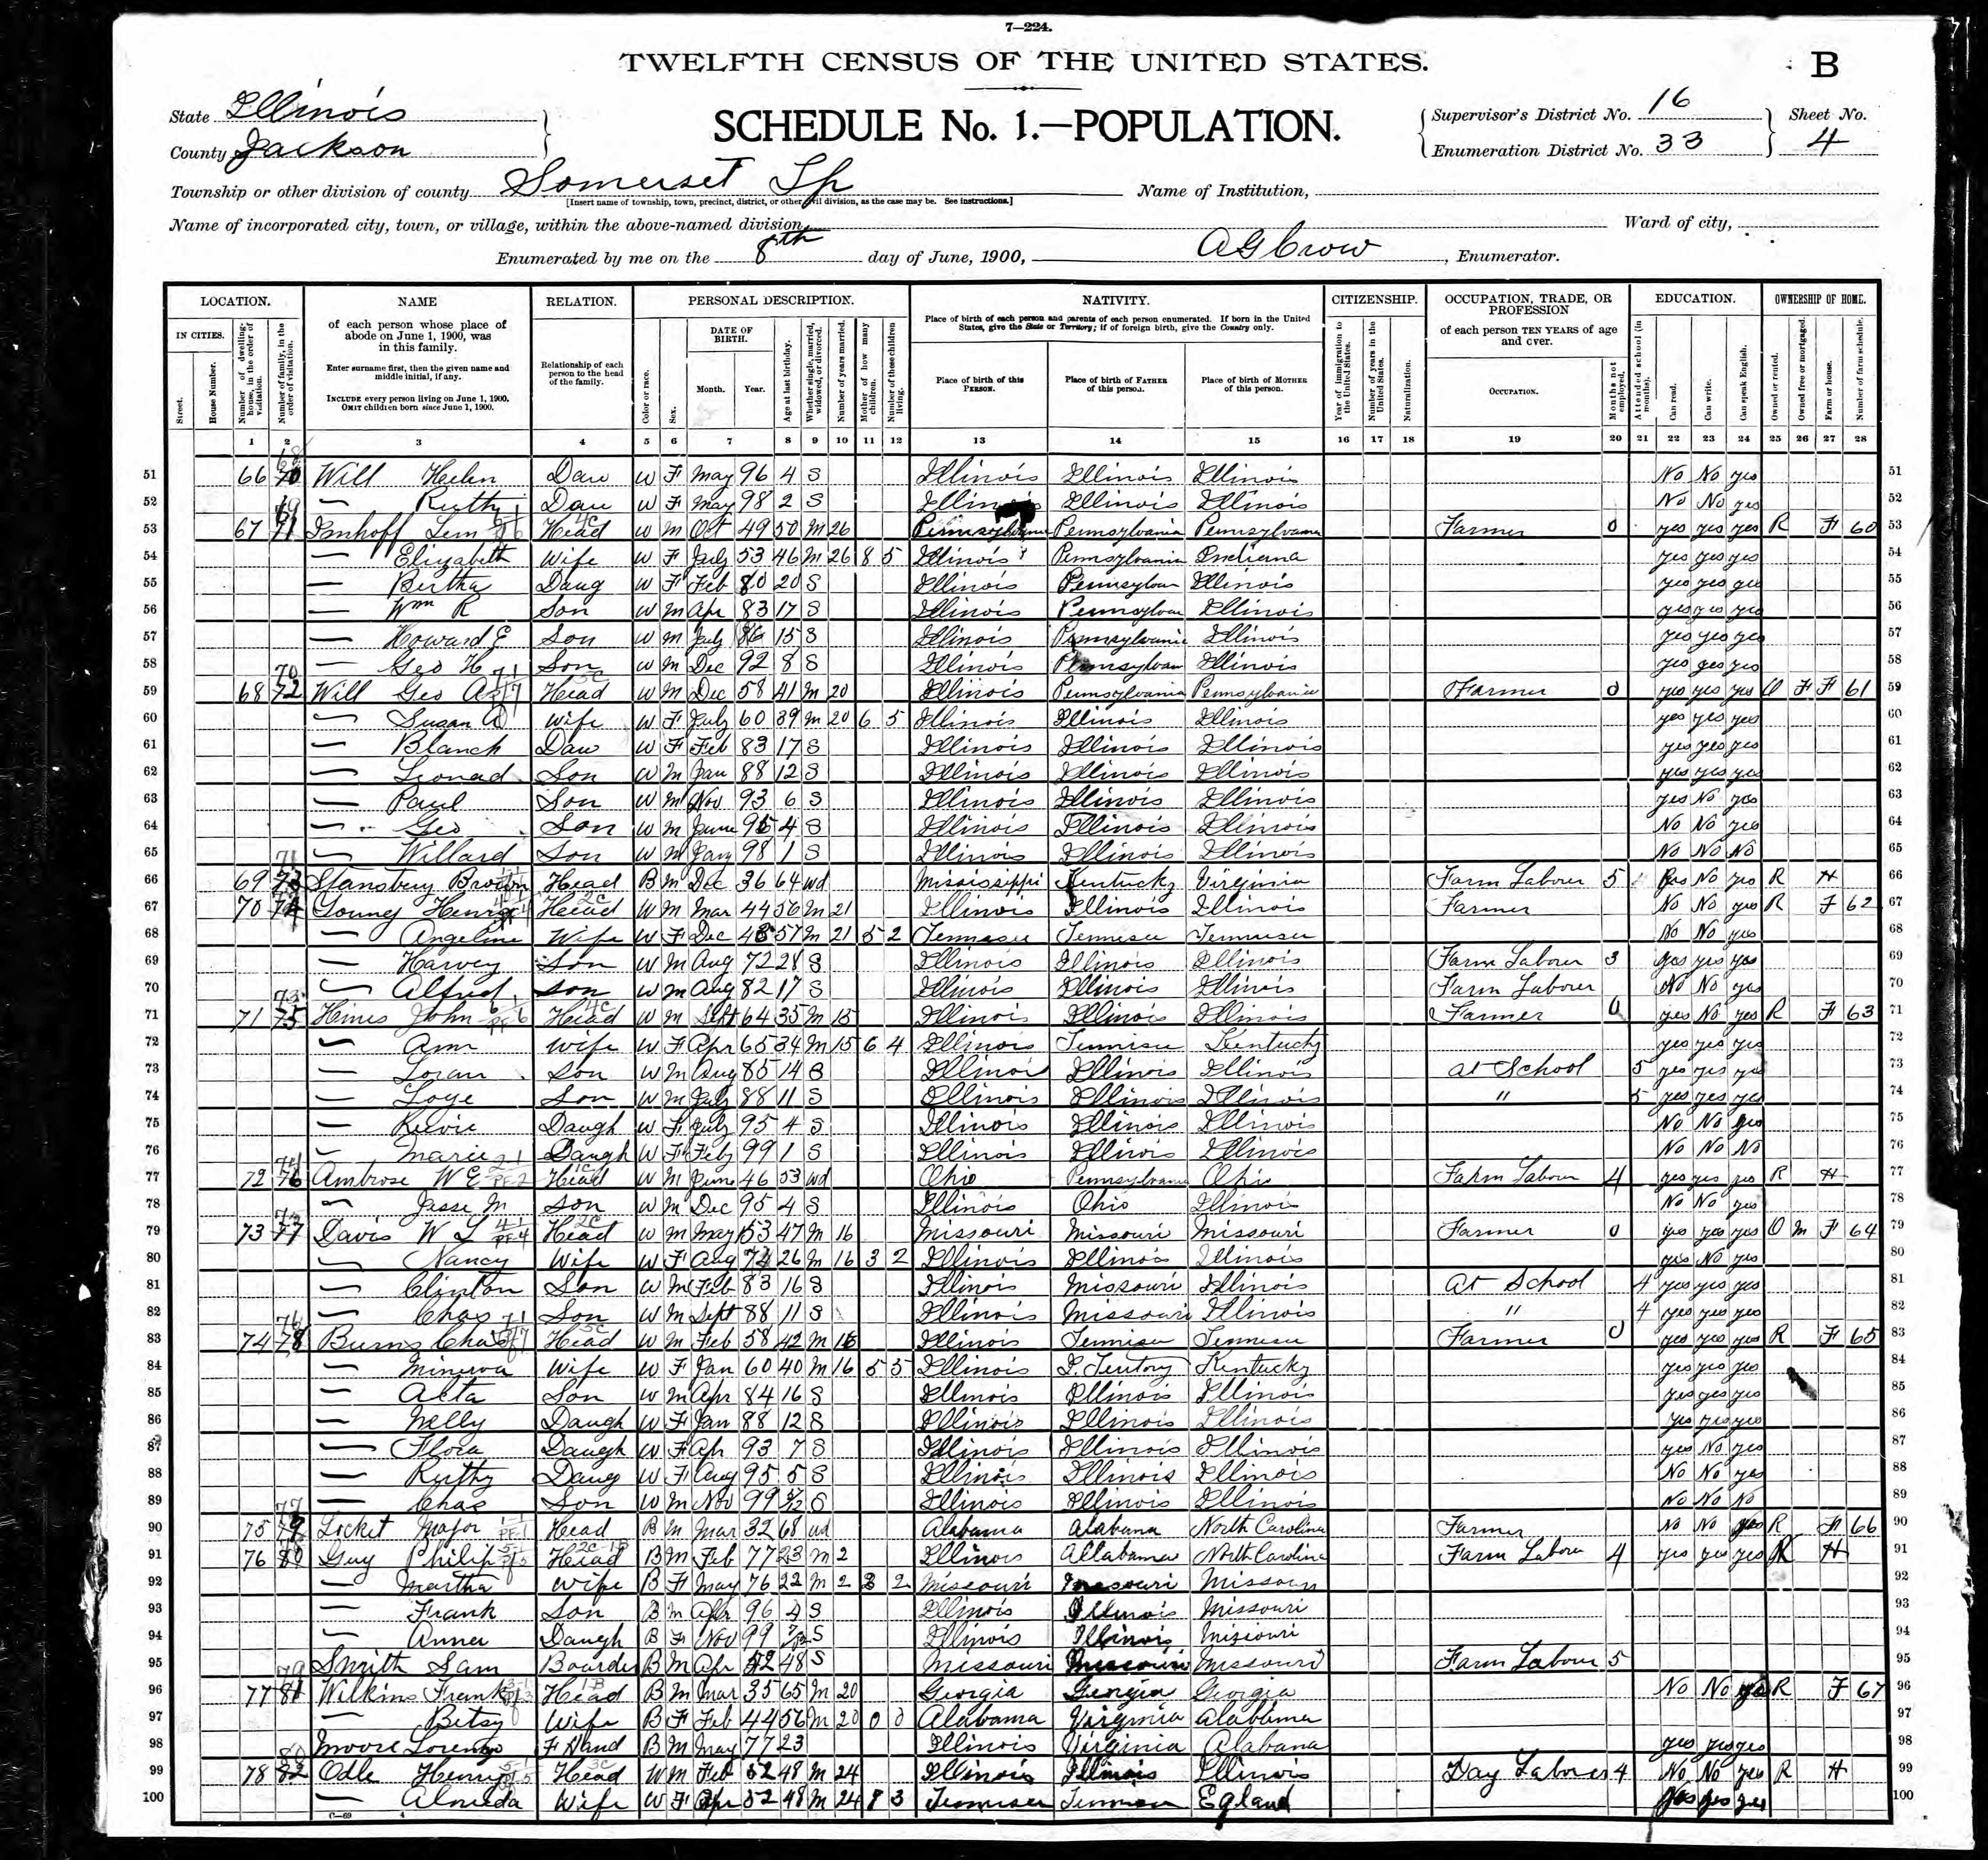 7—224.
TWELFTH CENSUS OF THE UNITED STATES.
B
State Illinois
County Jackson
SCHEDULE No. 1.—POPULATION.
Supervisor's District No. 16
Enumeration District No. 33
Sheet No. 4
Township or other division of county Somerset Tp
Name of Institution,
[Insert name of township, town, precinct, district, or other civil division, as the case may be. See instructions.]
Name of incorporated city, town, or village, within the above-named division,
Ward of city,
Enumerated by me on the 8th day of June, 1900, A G Crow, Enumerator.
LOCATION. NAME RELATION. PERSONAL DESCRIPTION. NATIVITY. CITIZENSHIP. OCCUPATION, TRADE, OR PROFESSION EDUCATION. OWNERSHIP OF HOME.
IN CITIES. Street. House Number. Number of dwelling-house, in the order of visitation. Number of family, in the order of visitation.
of each person whose place of abode on June 1, 1900, was in this family.
Enter surname first, then the given name and middle initial, if any.
INCLUDE every person living on June 1, 1900. OMIT children born since June 1, 1900.
Relationship of each person to the head of the family.
Color or race. Sex. DATE OF BIRTH. Month. Year. Age at last birthday. Whether single, married, widowed, or divorced. Number of years married. Mother of how many children. Number of these children living.
Place of birth of each person and parents of each person enumerated. If born in the United States, give the State or Territory; if of foreign birth, give the Country only.
Place of birth of this PERSON. Place of birth of FATHER of this person. Place of birth of MOTHER of this person.
Year of immigration to the United States. Number of years in the United States. Naturalization.
of each person TEN YEARS of age and over.
OCCUPATION. Months not employed.
Attended school (in months). Can read. Can write. Can speak English. Owned or rented. Owned free or mortgaged. Farm or house. Number of farm schedule.
1 2 3 4 5 6 7 8 9 10 11 12 13 14 15 16 17 18 19 20 21 22 23 24 25 26 27 28
51 66 70 Will Helen Dau W F May 96 4 S Illinois Illinois Illinois No No yes 51
52 — Ruthy Dau W F May 98 2 S Illinois Illinois Illinois No No yes 52
53 67 71 Imhoff Lem Head W M Oct 49 50 M 26 Pennsylvania Pennsylvania Pennsylvania Farmer 0 yes yes yes R F 60 53
54 — Elizabeth Wife W F July 53 46 M 26 8 5 Illinois Pennsylvania Indiana yes yes yes 54
55 — Bertha Daug W F Feb 80 20 S Illinois Pennsylvan Illinois yes yes yes 55
56 — Wm R Son W M Apr 83 17 S Illinois Pennsylvan Illinois yes yes yes 56
57 — Howard E Son W M July 86 15 S Illinois Pennsylvania Illinois yes yes yes 57
58 — Geo H Son W M Dec 92 8 S Illinois Pennsylvan Illinois yes yes yes 58
59 68 72 Will Geo A Head W M Dec 58 41 M 20 Illinois Pennsylvania Pennsylvania Farmer 0 yes yes yes O F F 61 59
60 — Susan A Wife W F July 60 39 M 20 6 5 Illinois Illinois Illinois yes yes yes 60
61 — Blanch Dau W F Feb 83 17 S Illinois Illinois Illinois yes yes yes 61
62 — Leonad Son W M Jan 88 12 S Illinois Illinois Illinois yes yes yes 62
63 — Paul Son W M Nov 93 6 S Illinois Illinois Illinois yes No yes 63
64 — Geo Son W M June 95 4 S Illinois Illinois Illinois No No yes 64
65 — Willard Son W M Jany 98 1 S Illinois Illinois Illinois No No No 65
66 69 73 Stansbury Brown Head B M Dec 36 64 wd Mississippi Kentucky Virginia Farm Laborer 5 yes No yes R H 66
67 70 74 Young Henry Head W M Mar 44 56 M 21 Illinois Illinois Illinois Farmer No No yes R F 62 67
68 — Angeline Wife W F Dec 43 57 M 21 5 2 Tennesee Tennesee Tennesee No No yes 68
69 — Harvey Son W M Aug 72 28 S Illinois Illinois Illinois Farm Laborer 3 yes yes yes 69
70 — Alfred son W M Aug 82 17 S Illinois Illinois Illinois Farm Laborer No No yes 70
71 71 75 Hines John Head W M Sept 64 35 M 15 Illinois Illinois Illinois Farmer 0 yes No yes R F 63 71
72 — Ann Wife W F Apr 65 34 M 15 6 4 Illinois Tennisee Kentucky yes yes yes 72
73 — Loran Son W M Aug 85 14 S Illinois Illinois Illinois at School 5 yes yes yes 73
74 — Loye Son W M July 88 11 S Illinois Illinois Illinois " 5 yes yes yes 74
75 — Daugh W F July 95 4 S Illinois Illinois Illinois No No yes 75
76 — Marie Daugh W F Feby 99 1 S Illinois Illinois Illinois No No No 76
77 72 76 Ambrose W E Head W M June 46 53 wd Ohio Pennsylvania Ohio Farm Laborer 4 yes yes yes R H 77
78 — Jesse M Son W M Dec 95 4 S Illinois Ohio Illinois No No yes 78
79 73 77 Davis W L Head W M May 53 47 M 16 Missouri Missouri Missouri Farmer 0 yes yes yes O M F 64 79
80 — Nancy Wife W F Aug 74 26 M 16 3 2 Illinois Illinois Illinois yes No yes 80
81 — Clinton Son W M Feb 83 16 S Illinois Missouri Illinois At School 4 yes yes yes 81
82 — Chas Son W M Sept 88 11 S Illinois Missouri Illinois " 4 yes yes yes 82
83 74 78 Burns Chas Head W M Feb 58 42 M 16 Illinois Tennisee Tennesee Farmer 0 yes yes yes R F 65 83
84 — Minerva Wife W F Jan 60 40 M 16 5 5 Illinois I. Teritory Kentucky yes yes yes 84
85 — Acta Son W M Apr 84 16 S Illinois Illinois Illinois yes yes yes 85
86 — Nelly Daugh W F Jan 88 12 S Illinois Illinois Illinois yes yes yes 86
87 — Flora Daugh W F Apr 93 7 S Illinois Illinois Illinois yes No yes 87
88 — Ruthy Daug W F Aug 95 5 S Illinois Illinois Illinois No No yes 88
89 — Chas Son W M Nov 99 S Illinois Illinois Illinois No No No 89
90 75 79 Locket Major Head B M Mar 32 68 wd Alabama Alabama North Carolina Farmer No No yes R F 66 90
91 76 80 Guy Philip Head B M Feb 77 23 M 2 Illinois Allabama North Carolina Farm Labore 4 yes yes yes R H 91
92 — Martha Wife B F May 76 22 M 2 2 Missouri Missouri Missouri 92
93 — Frank Son B M Apr 96 4 S Illinois Illinois Missouri 93
94 — Anner Daugh B F Nov 99 7/12 S Illinois Illinois Missouri 94
95 Smith Sam Boarder B M Apr 52 48 S Missouri Missouri Missouri Farm Laborer 5 95
96 77 81 Wilkins Frank Head B M Mar 35 65 M 20 Georgia Georgia Georgia No No yes R F 67 96
97 — Betsy Wife B F Feb 44 56 M 20 0 0 Alabama Virginia Alabama 97
98 Moore Lorenzo F Hand B M May 77 23 Illinois Virginia Alabana yes yes yes 98
99 78 82 Odle Henry Head W M Feb 52 48 M 24 Illinois Illinois Illinois Day Laborer 4 No No yes R H 99
100 — Almeda Wife W F Apr 52 48 M 24 8 3 Tennisee Tennisee Egland yes yes yes 100
C—69 4